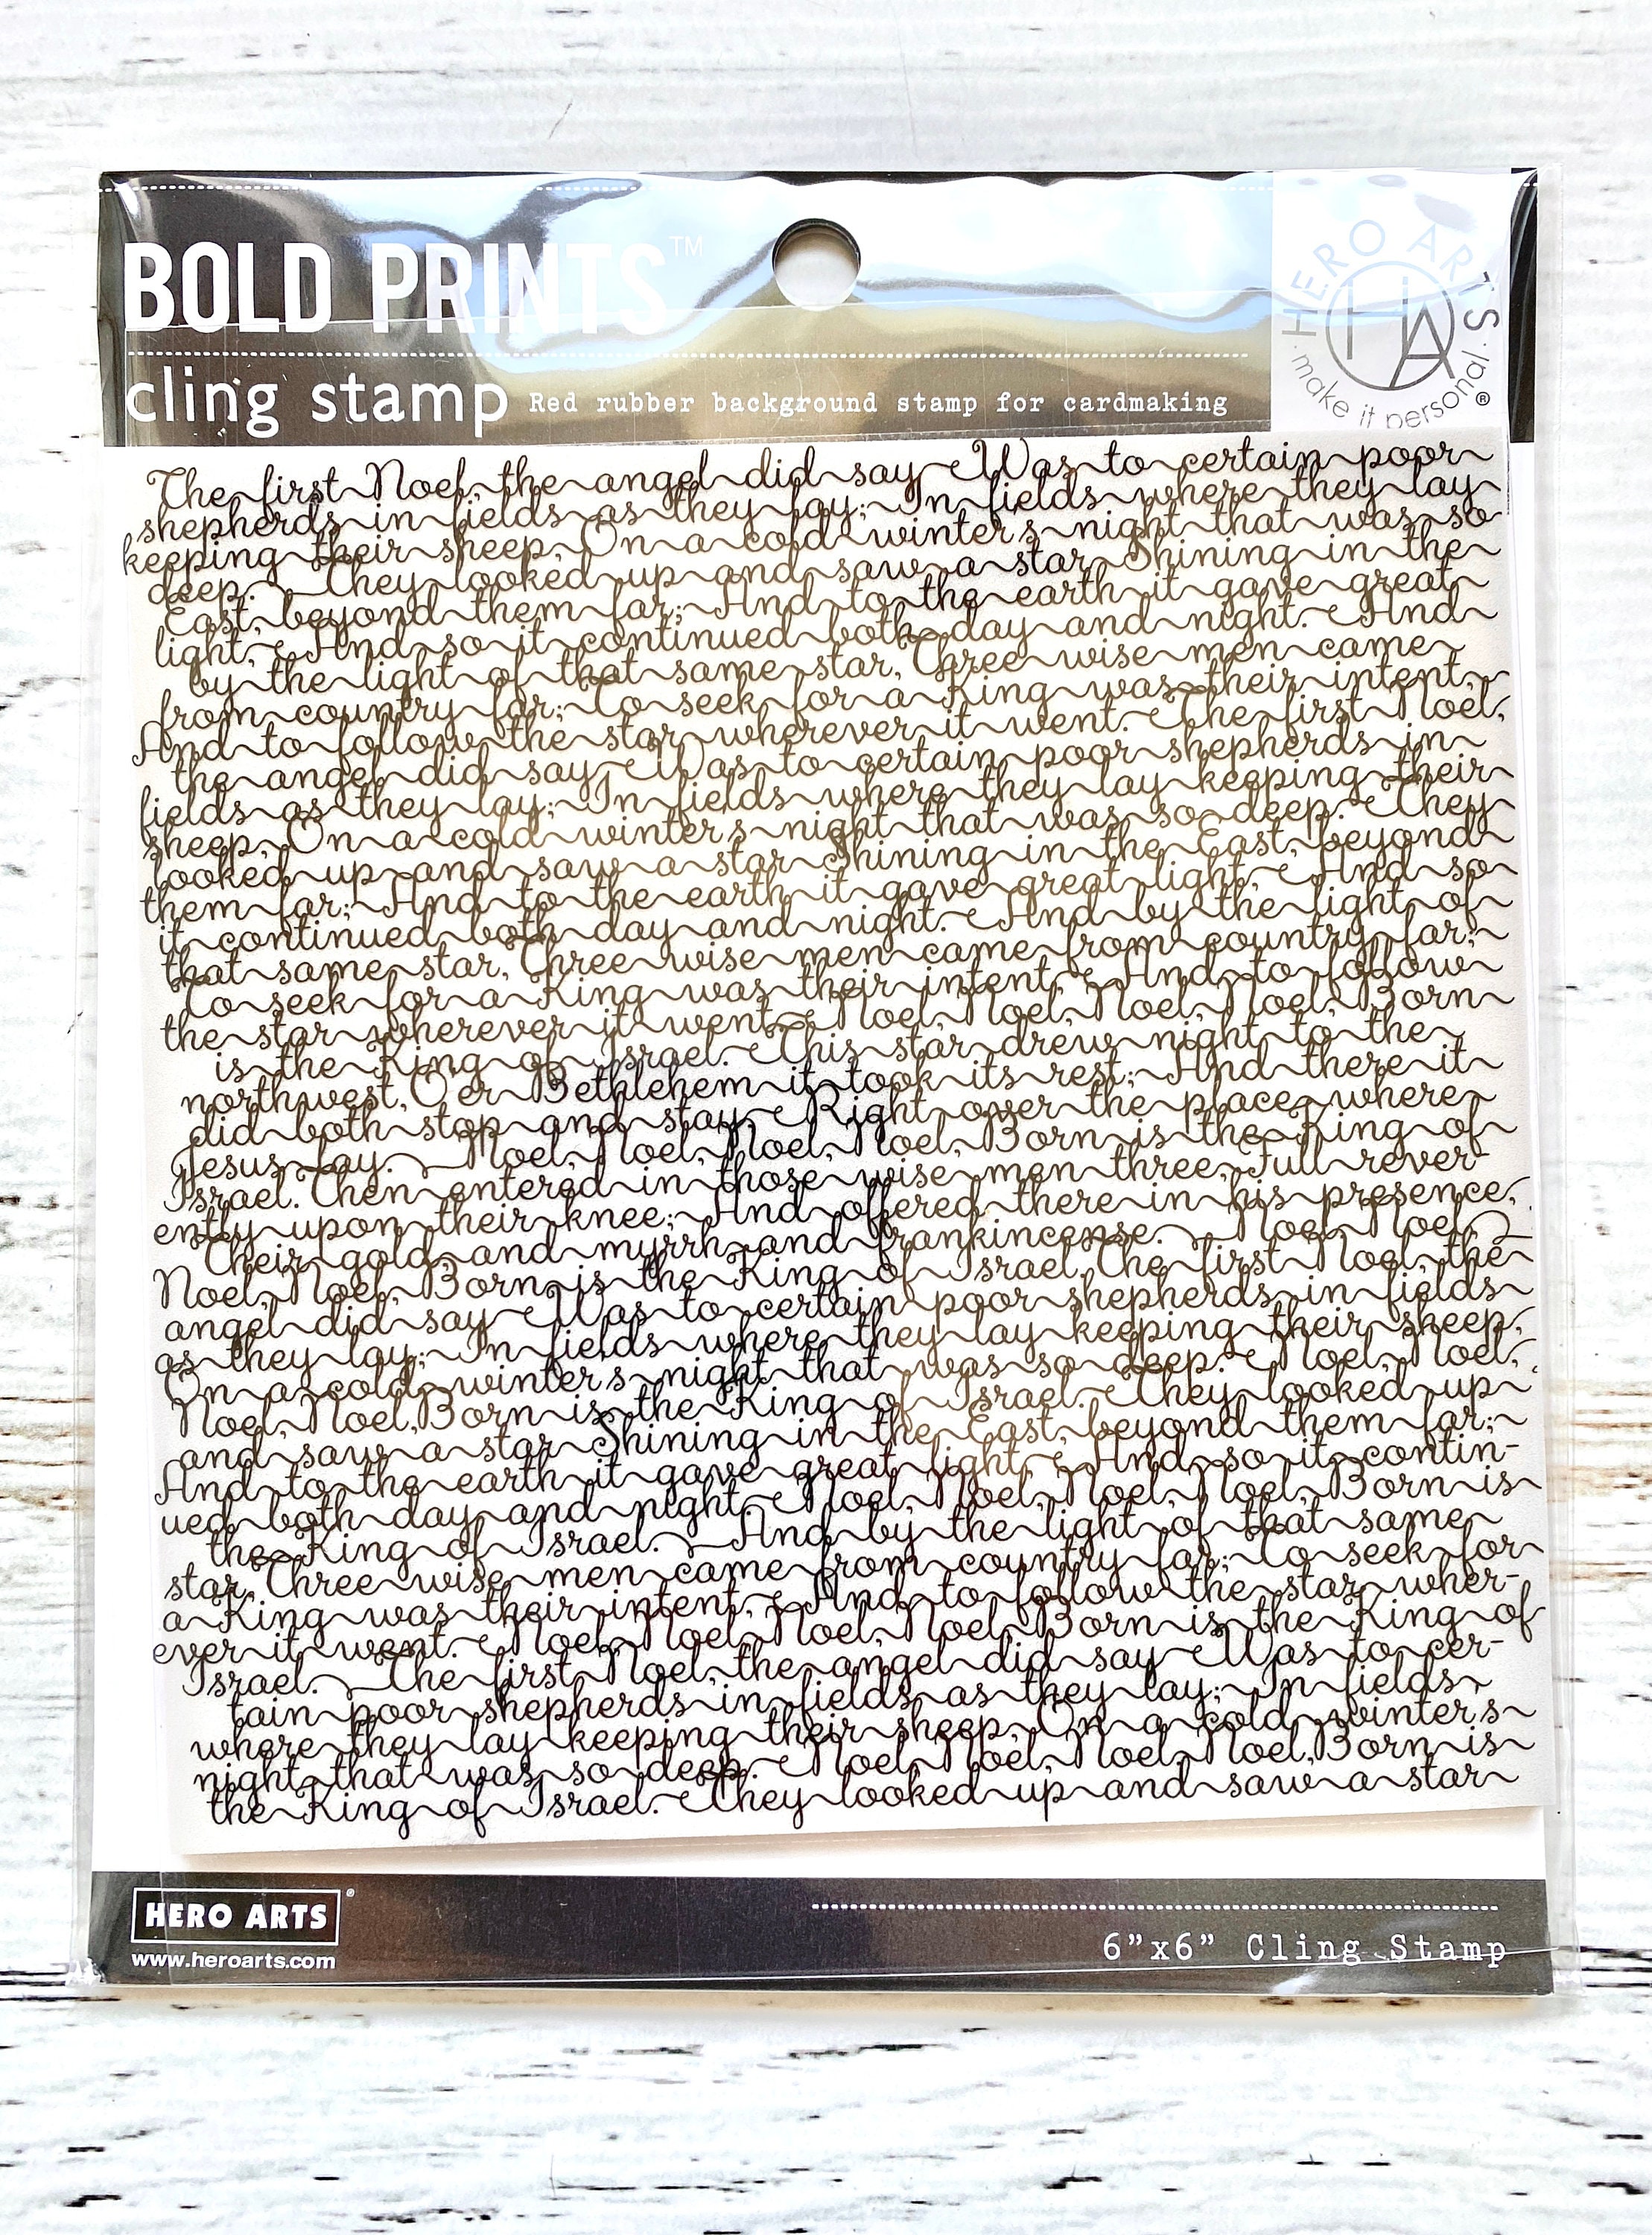 BOLD PRINTS™
cling stamp Red rubber background stamp for cardmaking
HERO ARTS
HA
make it personal ®
The first Noel, the angel did say Was to certain poor
shepherds in fields as they lay; In fields where they lay
keeping their sheep, On a cold winter's night that was so
deep. They looked up and saw a star Shining in the
East, beyond them far; And to the earth it gave great
light, And so it continued both day and night. And
by the light of that same star, Three wise men came
from country far; To seek for a King was their intent,
And to follow the star wherever it went. The first Noel,
the angel did say Was to certain poor shepherds in
fields as they lay; In fields where they lay keeping their
sheep, On a cold winter's night that was so deep. They
looked up and saw a star Shining in the East, beyond
them far; And to the earth it gave great light, And so
it continued both day and night. And by the light of
that same star, Three wise men came from country far;
To seek for a King was their intent, And to follow
the star wherever it went. Noel, Noel, Noel, Noel, Born
is the King of Israel. This star drew night to the
northwest, O'er Bethlehem it took its rest; And there it
did both stop and stay, Right over the place where
Jesus lay. Noel, Noel, Noel, Noel, Born is the King of
Israel. Then entered in those wise men three, Full rever-
ently upon their knee; And offered there in his presence,
Their gold, and myrrh and frankincense. Noel, Noel,
Noel, Noel, Born is the King of Israel. The first Noel, the
angel did say Was to certain poor shepherds in fields
as they lay; In fields where they lay keeping their sheep,
On a cold winter's night that was so deep. Noel, Noel,
Noel, Noel, Born is the King of Israel. They looked up
and saw a star Shining in the East, beyond them far;
And to the earth it gave great light, And so it contin-
ued both day and night. Noel, Noel, Noel, Noel, Born is
the King of Israel. And by the light of that same
star, Three wise men came from country far; To seek for
a King was their intent, And to follow the star wher-
ever it went. Noel, Noel, Noel, Noel, Born is the King of
Israel. The first Noel, the angel did say Was to cer-
tain poor shepherds in fields as they lay; In fields
where they lay keeping their sheep, On a cold winter's
night that was so deep. Noel, Noel, Noel, Noel, Born is
the King of Israel. They looked up and saw a star
HERO ARTS®
www.heroarts.com
6”x6” Cling Stamp